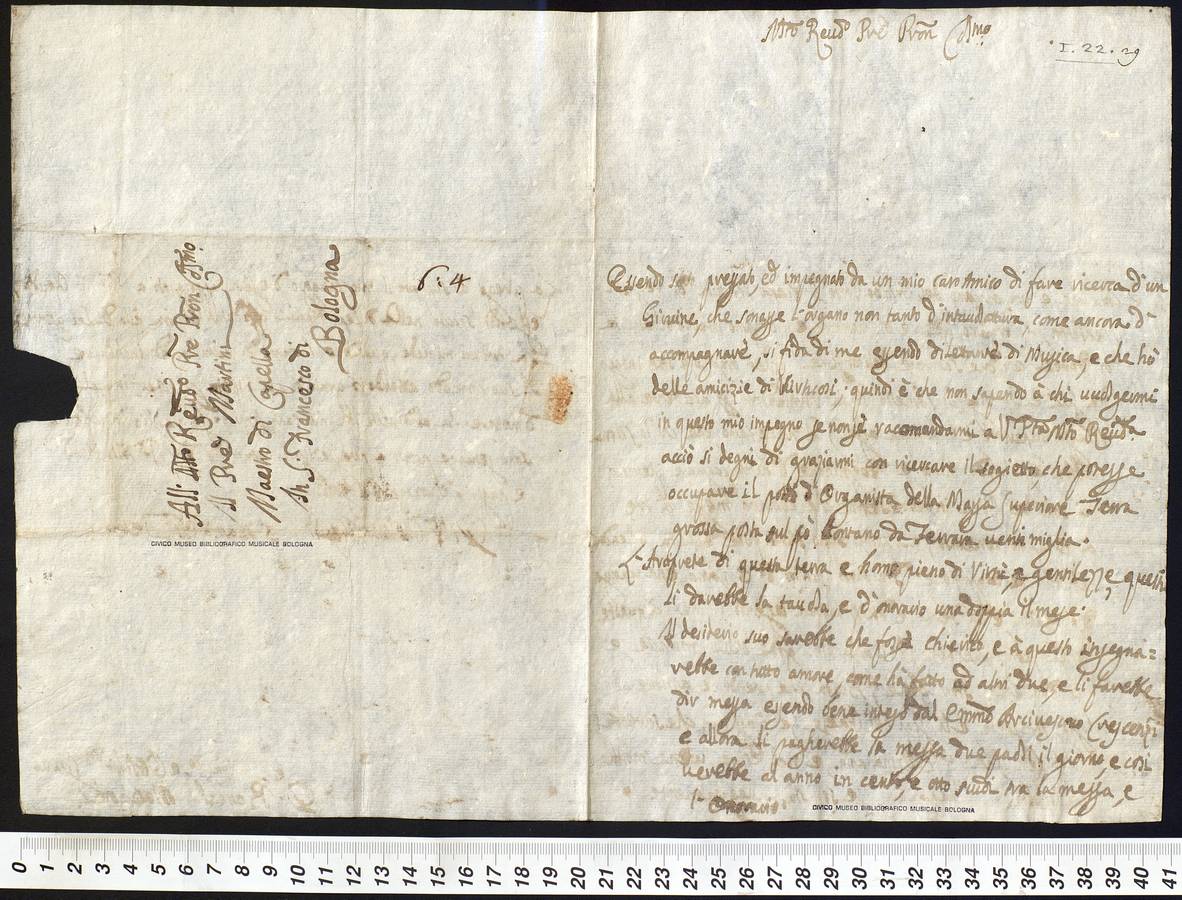 All' Mto Reudo Pre Pron Cmo
Al Pre Martini
Maestro di Capella
In S. Francesco di
Bologna
6:4
CIVICO MUSEO BIBLIOGRAFICO MUSICALE BOLOGNA
Mto Reudo Pre Pron Cmo
I. 22. 29
Essendo pregato, ed impegnato da un mio caro Amico di fare ricerca d'un
Giovine, che sonasse l'organo non tanto d'intavolatura come ancora d'
accompagnare, si fida di me essendo dilettante di Musica, e che hò
delle amicizie di Virtuosi; quindi è che non sapendo à chi uuolgermi
in questo mio impegno se non racomandarmi a V Ptà Mto Reuda
acciò si degni di graziarmi con ricercare il sogietto, che potesse
occupare il posto d'Organista della Massa Superiore Terra
grossa posta sul pò lontano da Ferrara uenti miglia.
L'Arciprete di questa terra e homo pieno di Virtù, e gentilezze, questi
li darebbe la tauola, e d'onorario una doppia il mese:
Il desiderio suo sarebbe che fosse chierico, e à questo insegna=
rebbe con tutto amore, come hà fatto ad altri due, e li farebbe
dir messa essendo bene inteso dal Emmo Arciuescouo Crescenzi
e allora li pagherebbe la messa due paoli il giorno, e così
uerebbe al anno in cento, e otto scudi tra la messa, e
l'Onorario
CIVICO MUSEO BIBLIOGRAFICO MUSICALE BOLOGNA
0 1 2 3 4 5 6 7 8 9 10 11 12 13 14 15 16 17 18 19 20 21 22 23 24 25 26 27 28 29 30 31 32 33 34 35 36 37 38 39 40 41